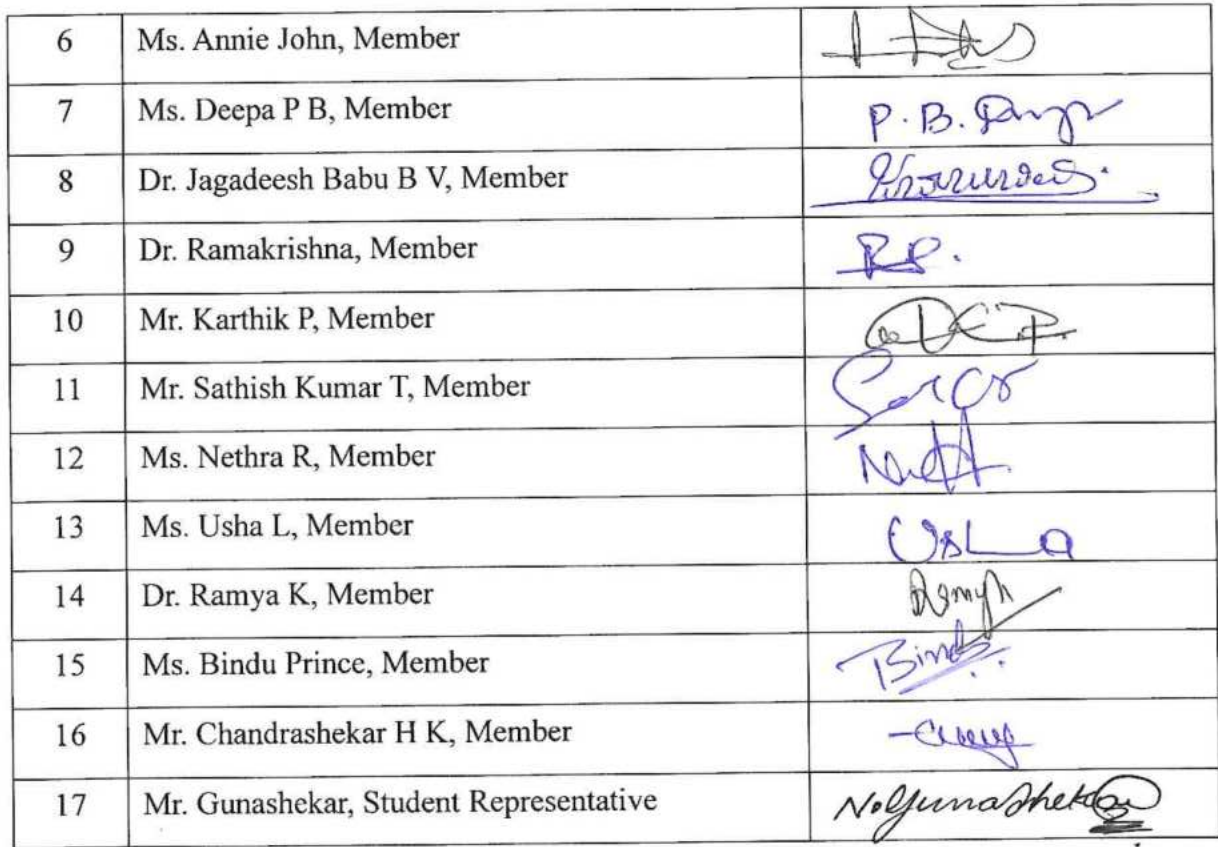 6 Ms. Annie John, Member
7 Ms. Deepa P B, Member P. B.
8 Dr. Jagadeesh Babu B V, Member
9 Dr. Ramakrishna, Member
10 Mr. Karthik P, Member
11 Mr. Sathish Kumar T, Member
12 Ms. Nethra R, Member
13 Ms. Usha L, Member Usha
14 Dr. Ramya K, Member
15 Ms. Bindu Prince, Member
16 Mr. Chandrashekar H K, Member
17 Mr. Gunashekar, Student Representative